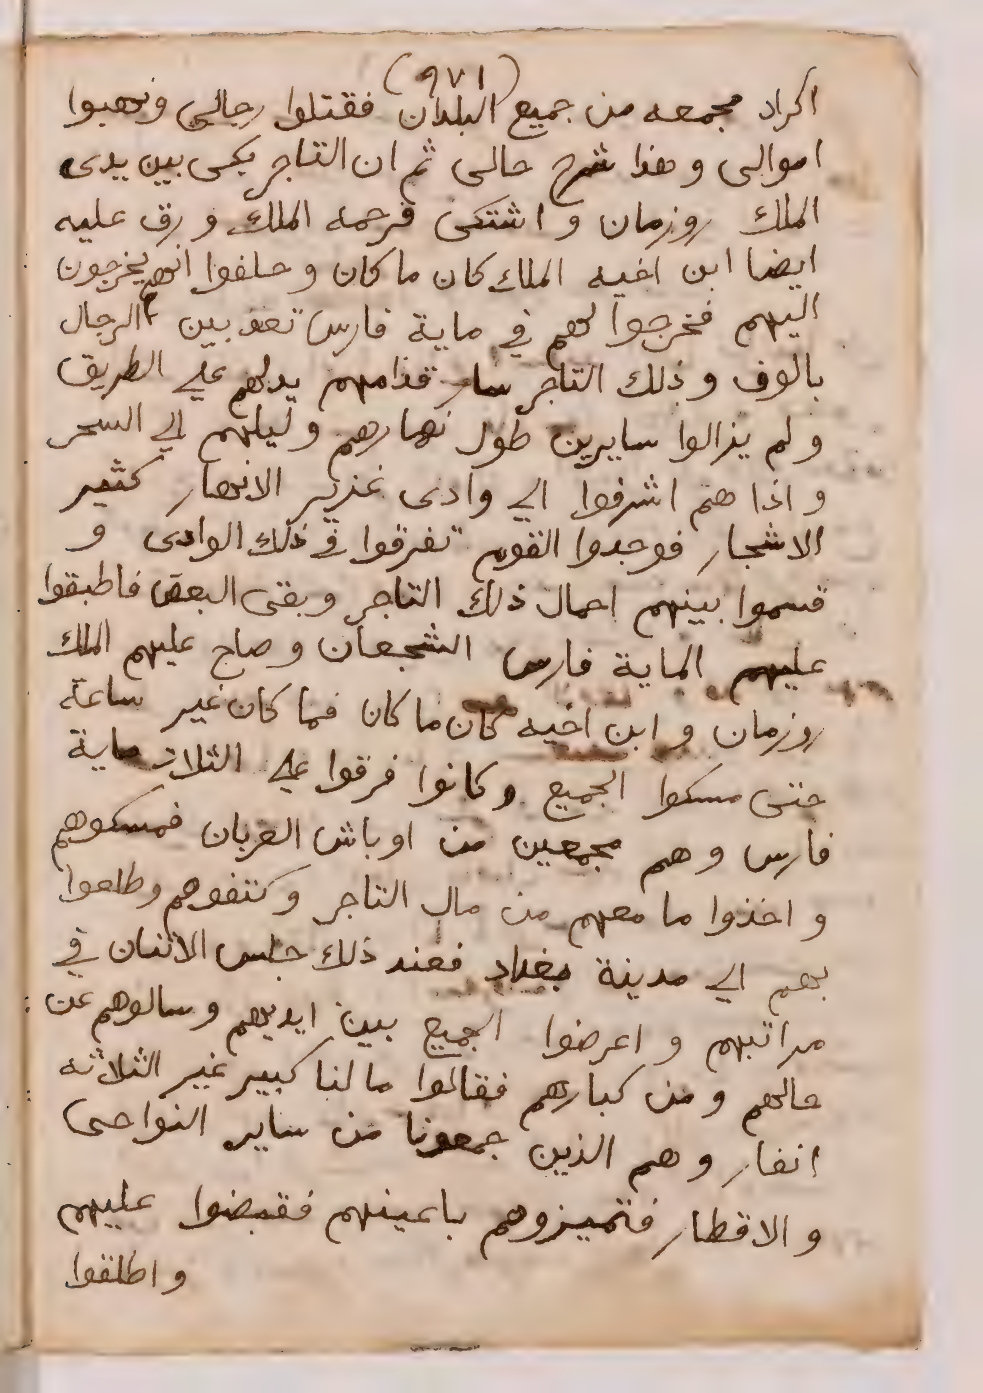 (٩٧١)
اكراد مجمعه من جميع البلدان فقتلوا رجالي ونهبوا
اموالى وهذا شرح حالى ثم ان التاجر بكى بين يدى
الملك روزمان و اشتكى فرحمه الملك و رق عليه
ايضا ابن اخيه الملك كان ما كان و حلفوا انهم يخرجون
اليهم فخرجوا لهم في ماية فارس تعد بين الرجال
بالوف و ذلك التاجر ساير قدامهم يدلهم على الطريق
و لم يزالوا سايرين طول نهارهم و ليلهم الي السحر
و اذا هم اشرفوا الي وادى غزير الانهار كثير
الاشجار فوجدوا القوم تفرقوا في ذلك الوادى و
قسموا بينهم احمال ذلك التاجر و بقى البعض فاطبقوا
عليهم الماية فارس الشجعان و صاح عليهم الملك
روزمان و ابن اخيه كان ما كان فما كان غير ساعة
حتى مسكوا الجميع و كانوا فرقوا على الثلاث ماية
فارس و هم مجمعين من اوباش العربان فمسكوهم
و اخذوا ما معهم من مال التاجر و كتفوهم وطلعوا
بهم الي مدينة بغداد فعند ذلك جلس الاثنان في
مراتبهم و اعرضوا الجميع بين ايديهم و سالوهم عن
حالهم و من كبارهم فقالوا ما لنا كبير غير الثلاثه
انفار و هم الذين جمعونا من ساير النواحى
و الاقطار فتميزوهم باعينهم فقبضوا عليهم
و اطلقوا